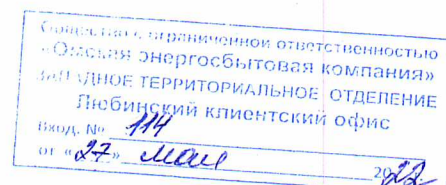 Общество с ограниченной ответственностью
«Омская энергосбытовая компания»
ЗАПАДНОЕ ТЕРРИТОРИАЛЬНОЕ ОТДЕЛЕНИЕ
Любинский клиентский офис
Вход. № 114
от «27» мая 2022